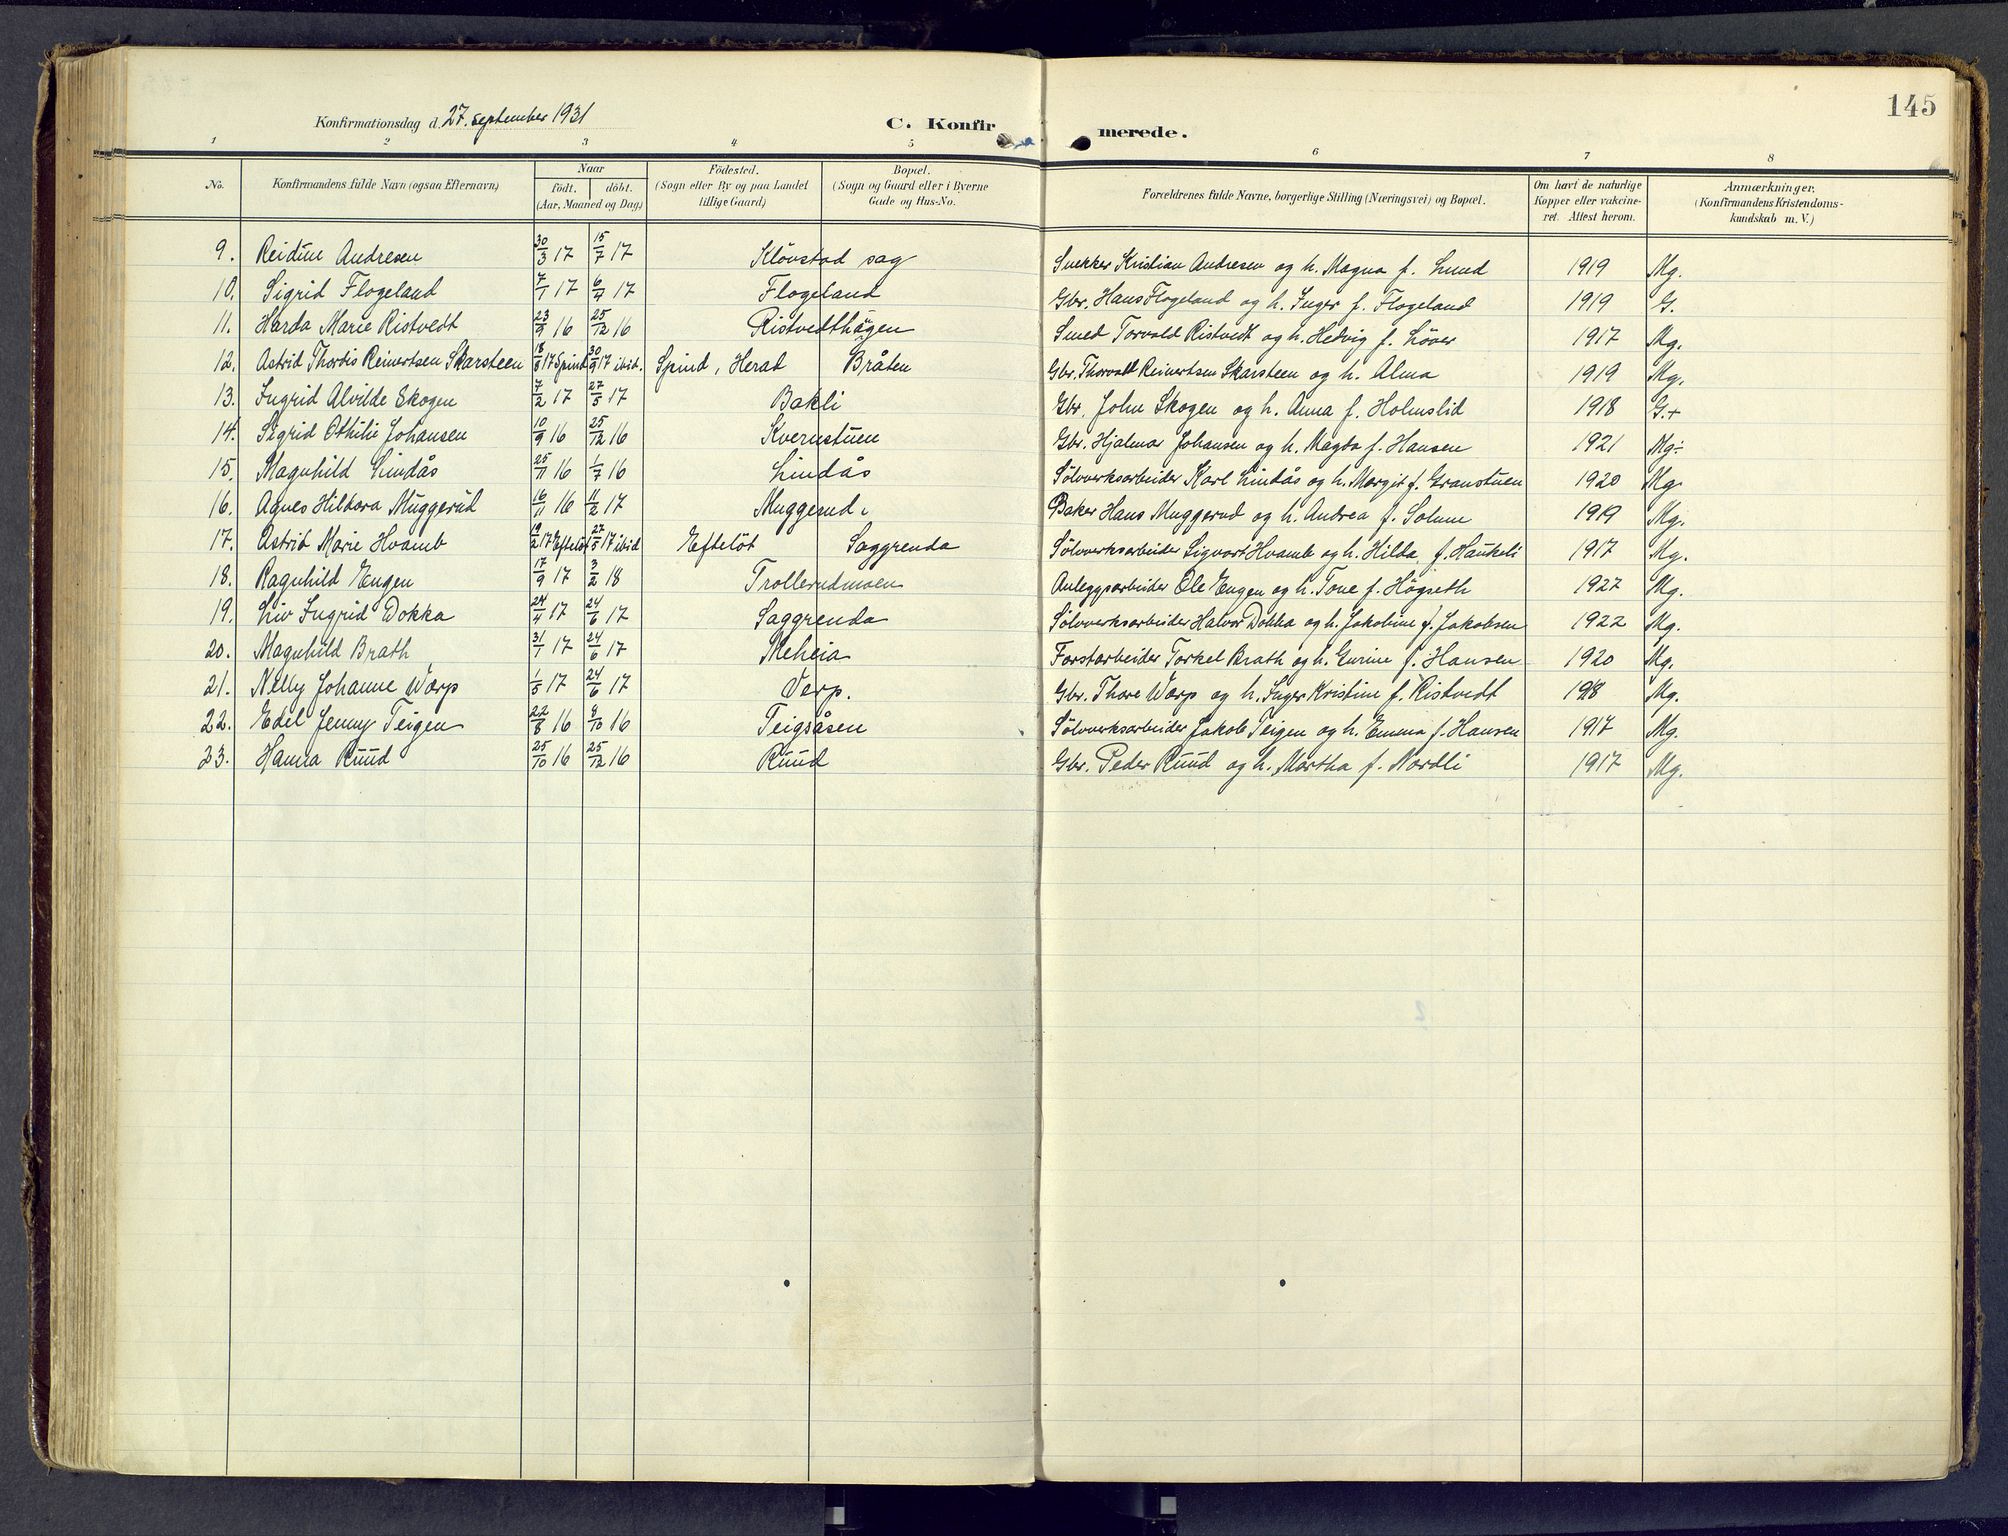 145
Konfirmationsdag d. 27. september 1931
C. Konfirmerede.
1 2 3 4 5 6 7 8
No.
Konfirmandens fulde Navn (ogsaa Efternavn)
Naar
födt. döbt.
(Aar, Maaned og Dag)
Födested.
(Sogn eller By og paa Landet
tillige Gaard)
Bopæl.
(Sogn og Gaard eller i Byerne
Gade og Hus-No.
Forældrenes fulde Navne, borgerlige Stilling (Næringsvei) og Bopæl.
Om havt de naturlige
Kopper eller vakcine-
ret. Attest herom.
Anmærkninger.
(Konfirmandens Kristendoms-
kundskab m. V.)
9. Reidun Andresen 30/3 17 15/7 17 Klövstad sag Snekker Kristian Andresen og h. Magna f. Lund 1919 Mg.
10. Sigrid Flogeland 7/1 17 6/4 17 Flogeland Gbr. Hans Flogeland og h. Inger f. Flogeland 1919 G.
11. Harda Marie Ristvedt 23/9 16 25/12 16 Ristvedthagen Smed Torvald Ristvedt og h. Hedvig f. Löver 1917 Mg.
12. Astrid Thordis Reinertsen Skarsteen 18/8 17 Spind 30/9 17 ibid. Spind, Herad Bråten Gbr. Thorvald Reinertsen Skarsteen og h. Alma 1919 Mg.
13. Ingrid Alvilde Skogen 7/2 17 27/5 17 Bakli Gbr. John Skogen og h. Anna f. Holmslid 1918 G.+
14. Sigrid Othilie Johansen 10/9 16 25/12 16 Kvernstuen Gbr. Hjalmar Johansen og h. Magda f. Hansen 1921 Mg÷
15. Magnhild Lindås 25/11 16 1/7 16 Lindås Sölvverksarbeider Karl Lindås og h. Margit f. Granstuen 1920 Mg.
16. Agnes Hildora Muggerud 16/11 16 11/2 17 Muggerud. Baker Hans Muggerud og h. Andrea f. Solum 1919 Mg.
17. Astrid Marie Hvamb 19/2 17 Efteløt 27/5 17 ibid Efteløt Saggrenda Sölvverksarbeider Sigvart Hvamb og h. Hilda f. Haukeli 1917 Mg.
18. Ragnhild Engen 17/9 17 3/2 18 Trollerudmoen Anleggsarbeider Ole Engen og h. Tone f. Högseth 1927 Mg.
19. Liv Ingrid Dokka 24/4 17 24/6 17 Saggrenda Sölvverksarbeider Halvor Dokka og h. Jakobine f. Jakobsen 1922 Mg.
20. Magnhild Brath 31/1 17 24/6 17 Meheia Forstarbeider Torkel Brath og h. Gurine f. Hansen 1920 Mg.
21. Nelly Johanne Warp 1/5 17 24/6 17 Verp. Gbr. Thore Warp og h. Inger Kristine f. Ristvedt 198 Mg.
22. Edel Jenny Teigen 22/8 16 8/10 16 Teigsåsen Sölvverksarbeider Jakob Teigen og h. Emma f. Hansen 1917 Mg.
23. Hanna Ruud 25/10 16 25/12 16 Ruud Gbr. Peder Ruud og h. Martha f. Nordli 1917 Mg.